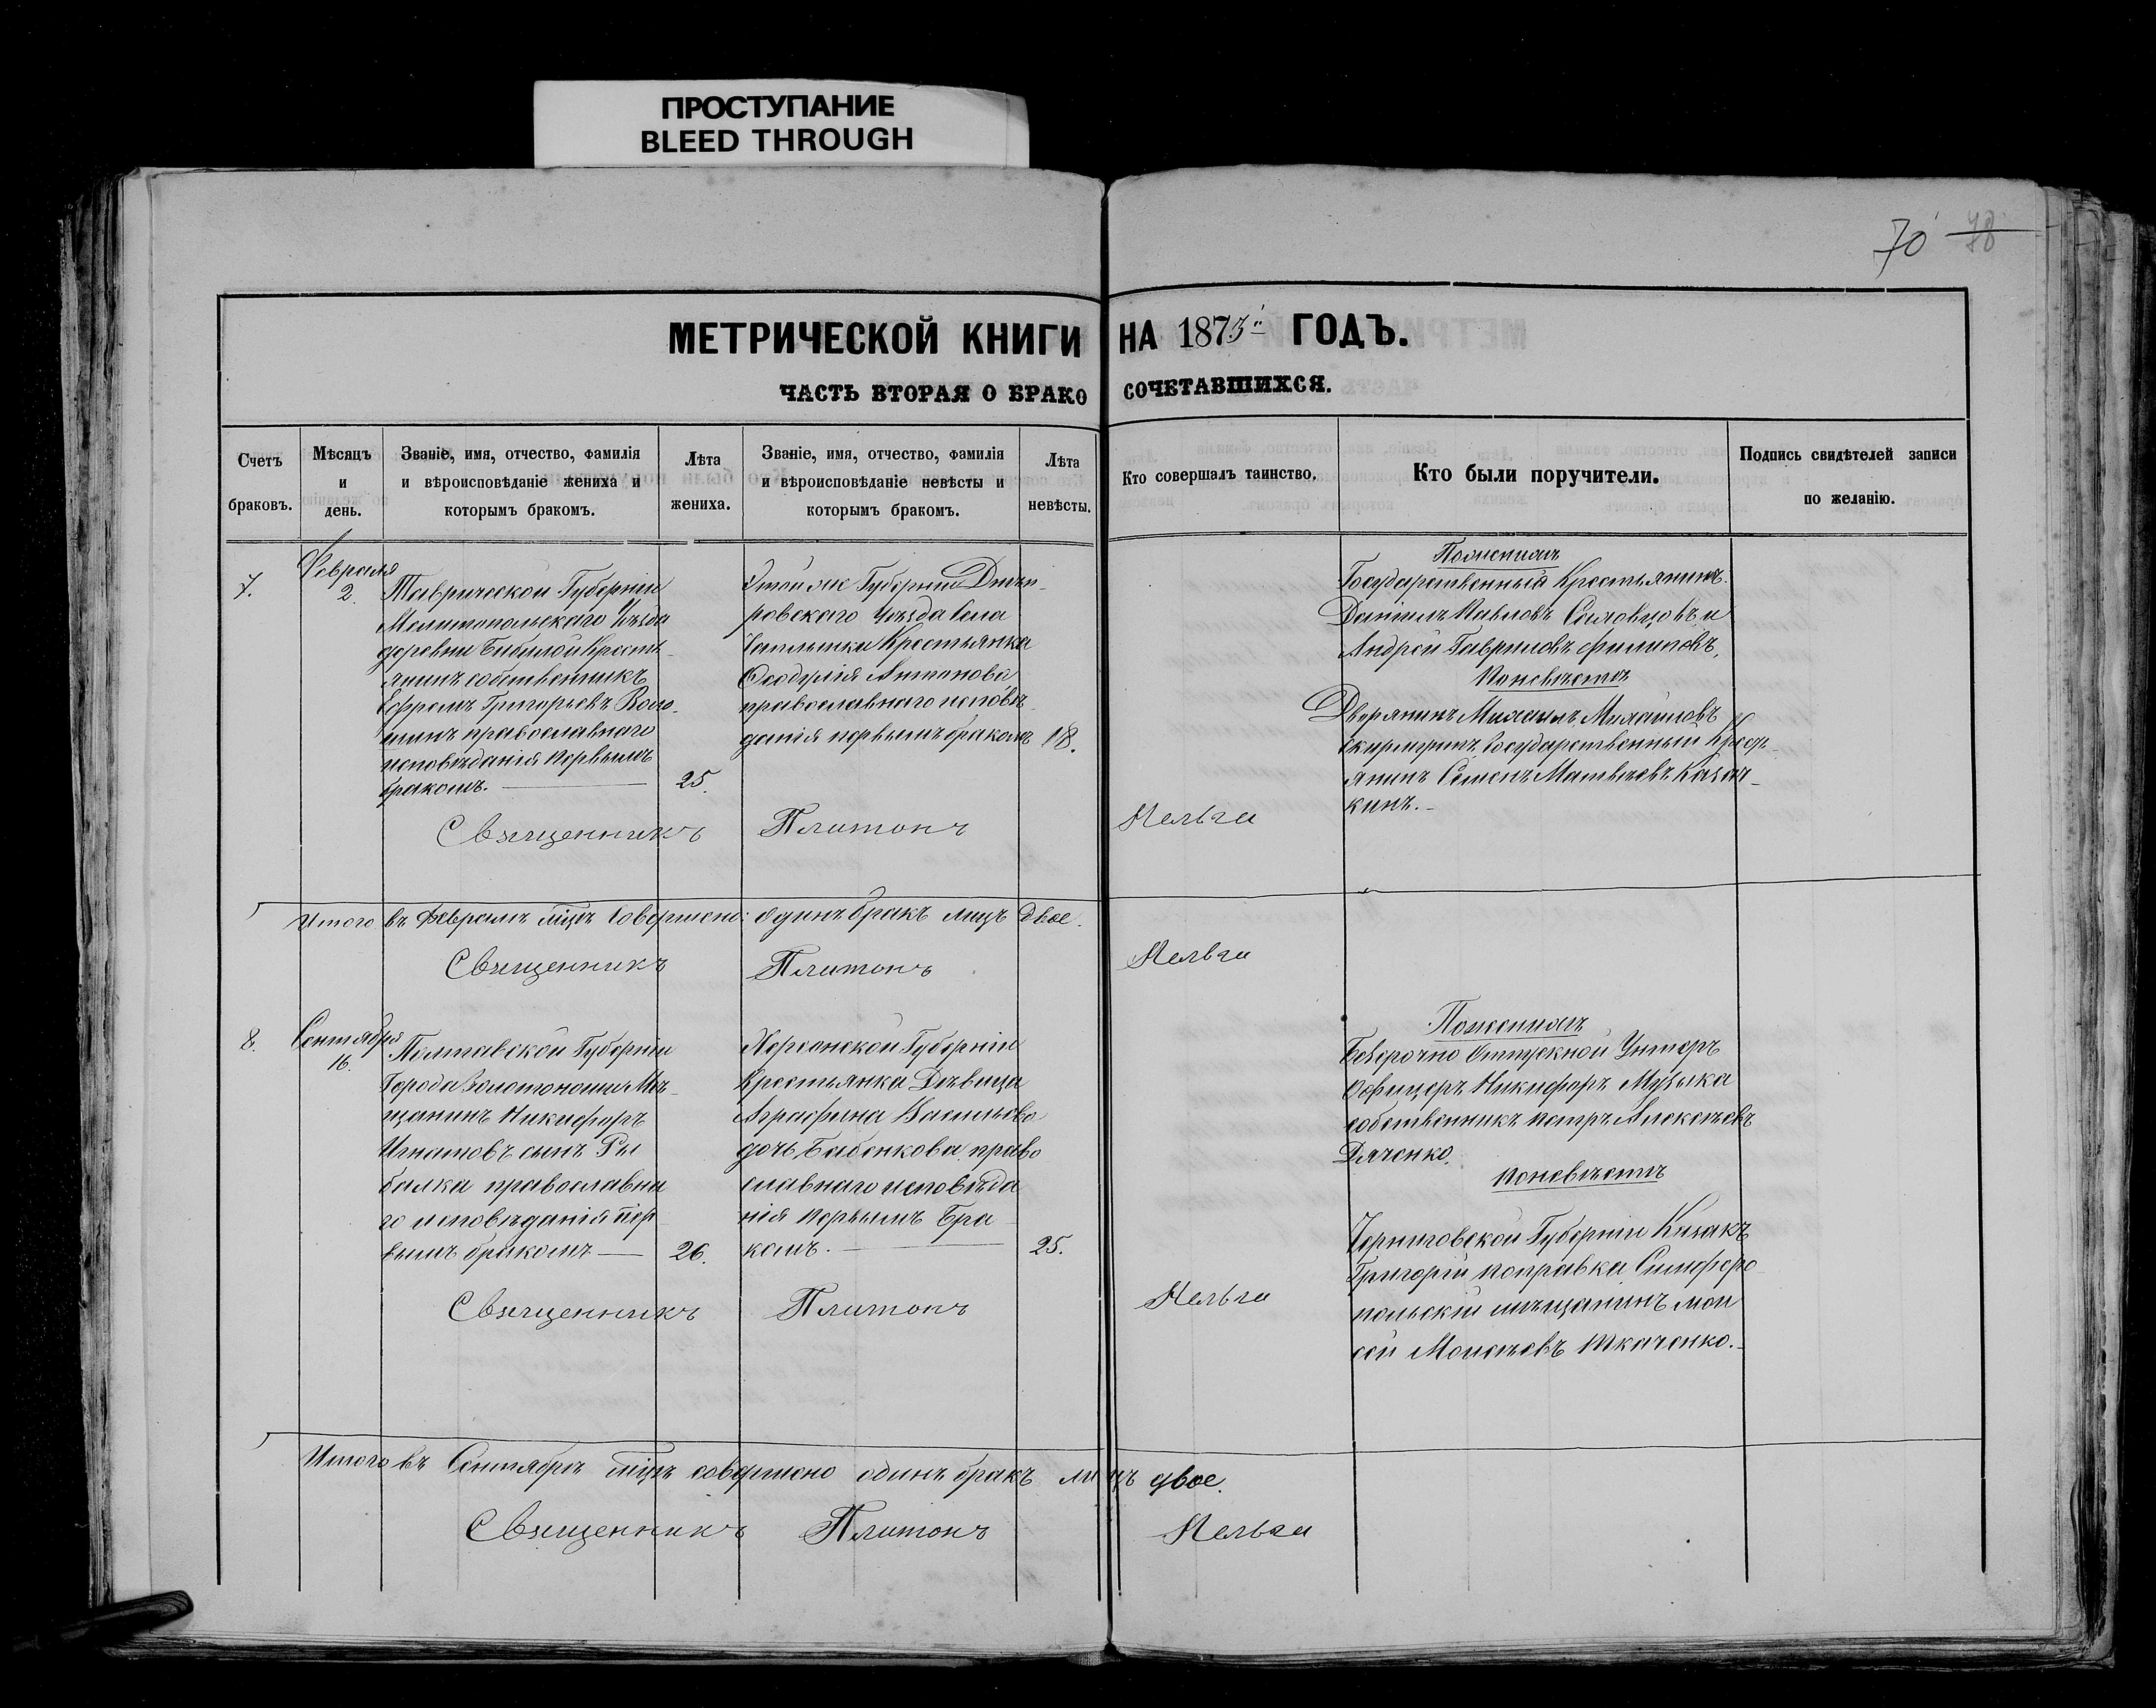 ПРОСТУПАНИЕ
BLEED THROUGH
70
78
МЕТРИЧЕСКОЙ КНИГИ НА 1875й ГОДЪ.
ЧАСТЬ ВТОРАЯ О БРАКОСОЧЕТАВШИХСЯ.
Счетъ
браковъ.
Мѣсяцъ
и
день.
Званіе, имя, отчество, фамилія
и вѣроисповѣданіе жениха и
которымъ бракомъ.
Лѣта
жениха.
Званіе, имя, отчество, фамилія
и вѣроисповѣданіе невѣсты и
которымъ бракомъ.
Лѣта
невѣсты.
Кто совершалъ таинство.
Кто были поручители.
Подпись свидѣтелей записи
по желанію.
7.
Февраля
2.
Таврической Губерніи
Мелитопольскаго Уѣзда
деревни Кресть
янинъ собственникъ
Ефремъ Григорьевъ
православнаго
исповѣданія первымъ
бракомъ.
25.
Этой же Губерніи Днѣп
ровскаго Уѣзда Села
Чаплынки Крестьянка
Феодулія Антонова
православнаго исповѣ
данія первымъ бракомъ
18.
По женихѣ
Государственный Крестьянинъ
Даніилъ Павловъ и
Андрей Гавриловъ Филиповъ,
По невѣстѣ
Дворянинъ Михаилъ Михайловъ
Государственный Крес
янинъ Семенъ Матвѣевъ Казач
кинъ.
Священникъ Платонъ
Итого въ Февралѣ мцѣ совершено: одинъ бракъ лицъ двое.
Священникъ Платонъ
8.
Сентября
16.
Полтавской Губерніи
Города Золотоноши Мѣ
щанинъ Никифоръ
Игнатовъ сынъ Ры
балка православна
го исповѣданія пер
вымъ бракомъ
26.
Херсонской Губерніи
Крестьянка Дѣвица
Аграфина Васильева
дочь Бабенкова право
славнаго исповѣда
нія первымъ бра
комъ.
25.
По женихѣ
Безсрочно Отпускной Унтеръ
Офицеръ Никифоръ Музыка
собственникъ Петръ Алексѣевъ
Дяченко.
По невѣстѣ
Черниговской Губерніи Казакъ
Григорій Поправка Симферо
польскій мѣщанинъ Мои
сей Моисѣевъ Ткаченко.
Священникъ Платонъ
Итого въ Сентябрѣ мцѣ совершено одинъ бракъ лицъ двое.
Священникъ Платонъ